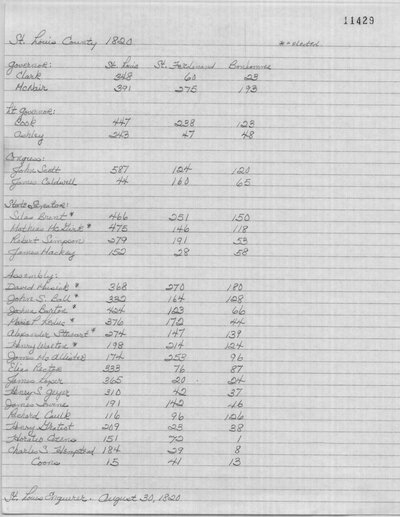 11429
St. Louis County 1820
*=elected
Governor: St. Louis St. Ferdinand Bonhomme
Clark 348 60 23
McNair 391 275 193
Lt Governor:
Cook 447 238 123
Ashley 243 47 48
Congress:
John Scott 587 124 120
James Caldwell 44 160 65
State Senator:
Silas Brent * 466 251 150
Mathias McGirk * 475 146 118
Robert Simpson 279 191 53
James Mackay 152 28 58
Assembly:
David Musick * 368 270 180
John S. Ball * 332 164 128
Joshua Barton * 424 123 66
Marie P. Leduc * 376 172 44
Alexander Stewart * 274 147 139
Henry Walton * 198 214 124
James McAllister 174 253 96
Elias Rector 333 76 87
James Loper 365 20 24
Henry S. Geyer 310 42 37
James 191 142 46
Richard Caulk 116 96 126
Henry 209 23 38
Horatio Cozens 151 72 1
Charles S. Hempstead 184 29 8
Coons 15 41 13
St. Louis Enquirer. August 30, 1820